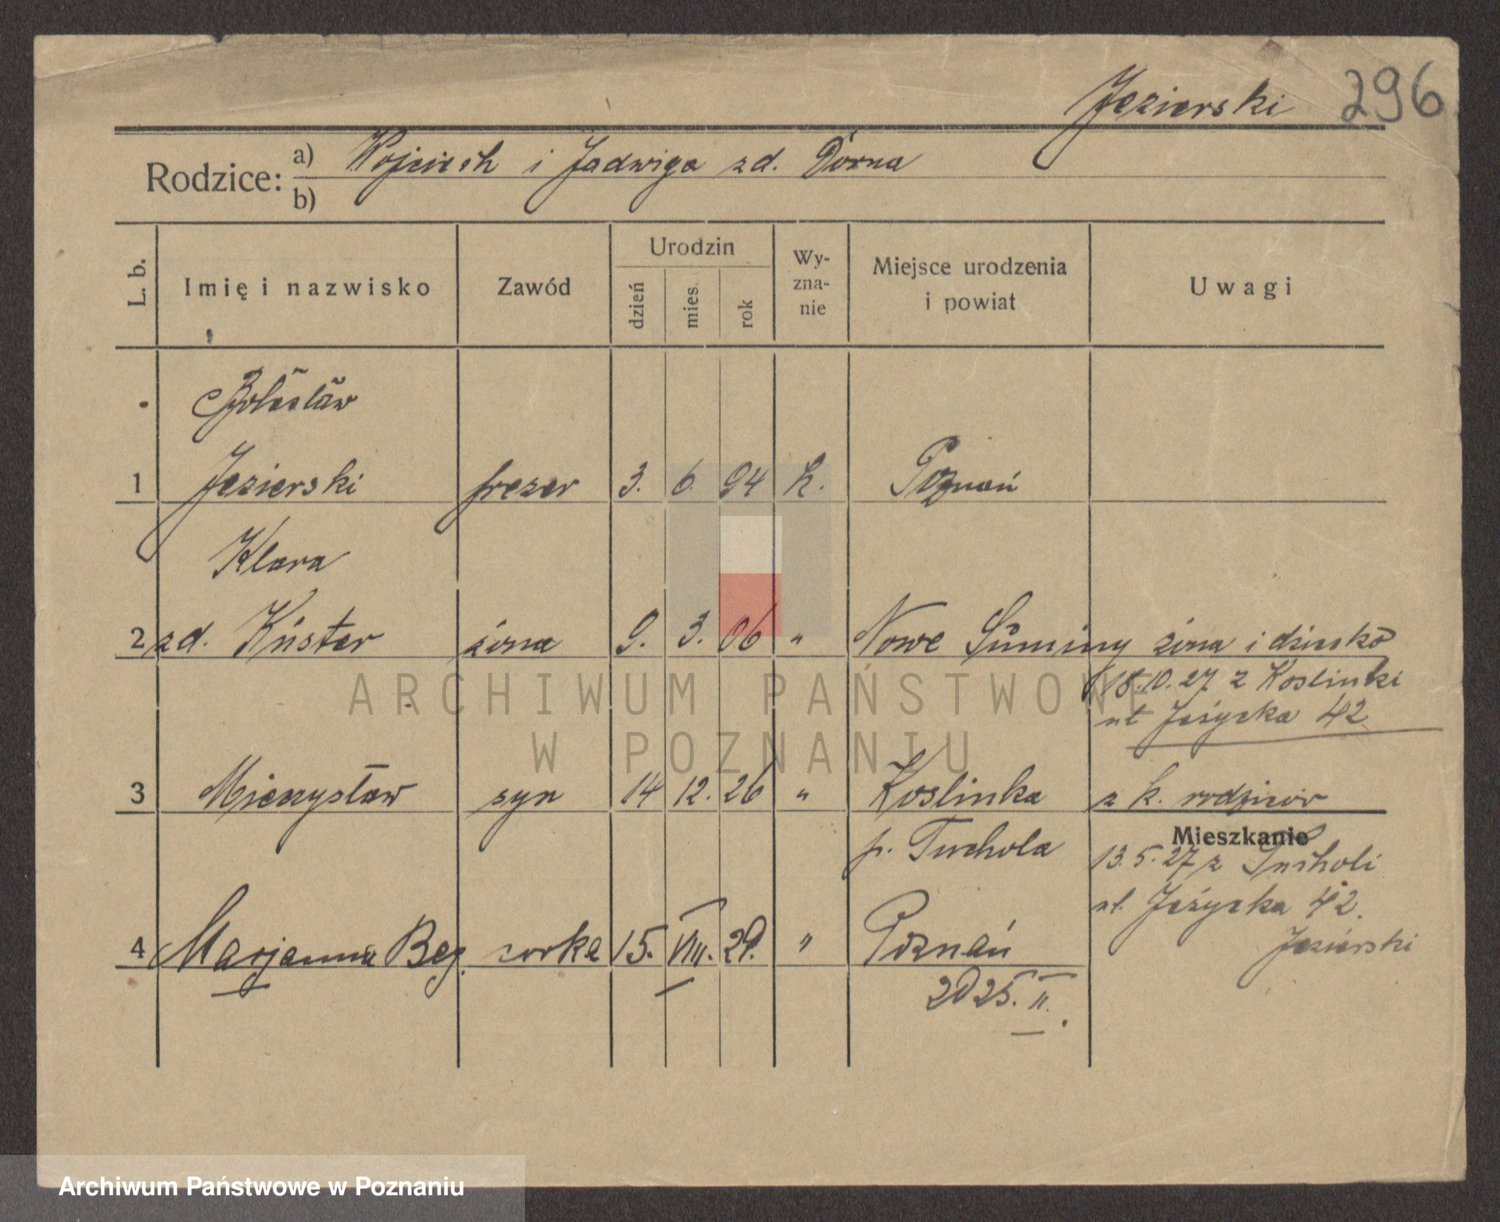 Jezierski 296
Rodzice: a) Wojciech i Jadwiga zd. Dorna
b)
L. b. Imię i nazwisko Zawód Urodzin dzień mies. rok Wy-zna-nie Miejsce urodzenia i powiat Uwagi
Bolesław
1 Jezierski frezer 3. 6. 94 k. Poznań
Klara
2 zd. Küster żona 9. 3. 06 " Nowe Suminy żona i dziecko
18.10.27 z Koslinki
ul Jeżycka 42
3 Mieczysław syn 14 12. 26 " Koslinka z k. rodziców
p. Tuchola Mieszkanie
13.5.27 z Tucholi
ul. Jeżycka 42.
Jezierski
4 Marjanna Beg. corka 15. VIII. 29. " Poznań
2025. II.
ARCHIWUM PAŃSTWOWE
W POZNANIU
Archiwum Państwowe w Poznaniu